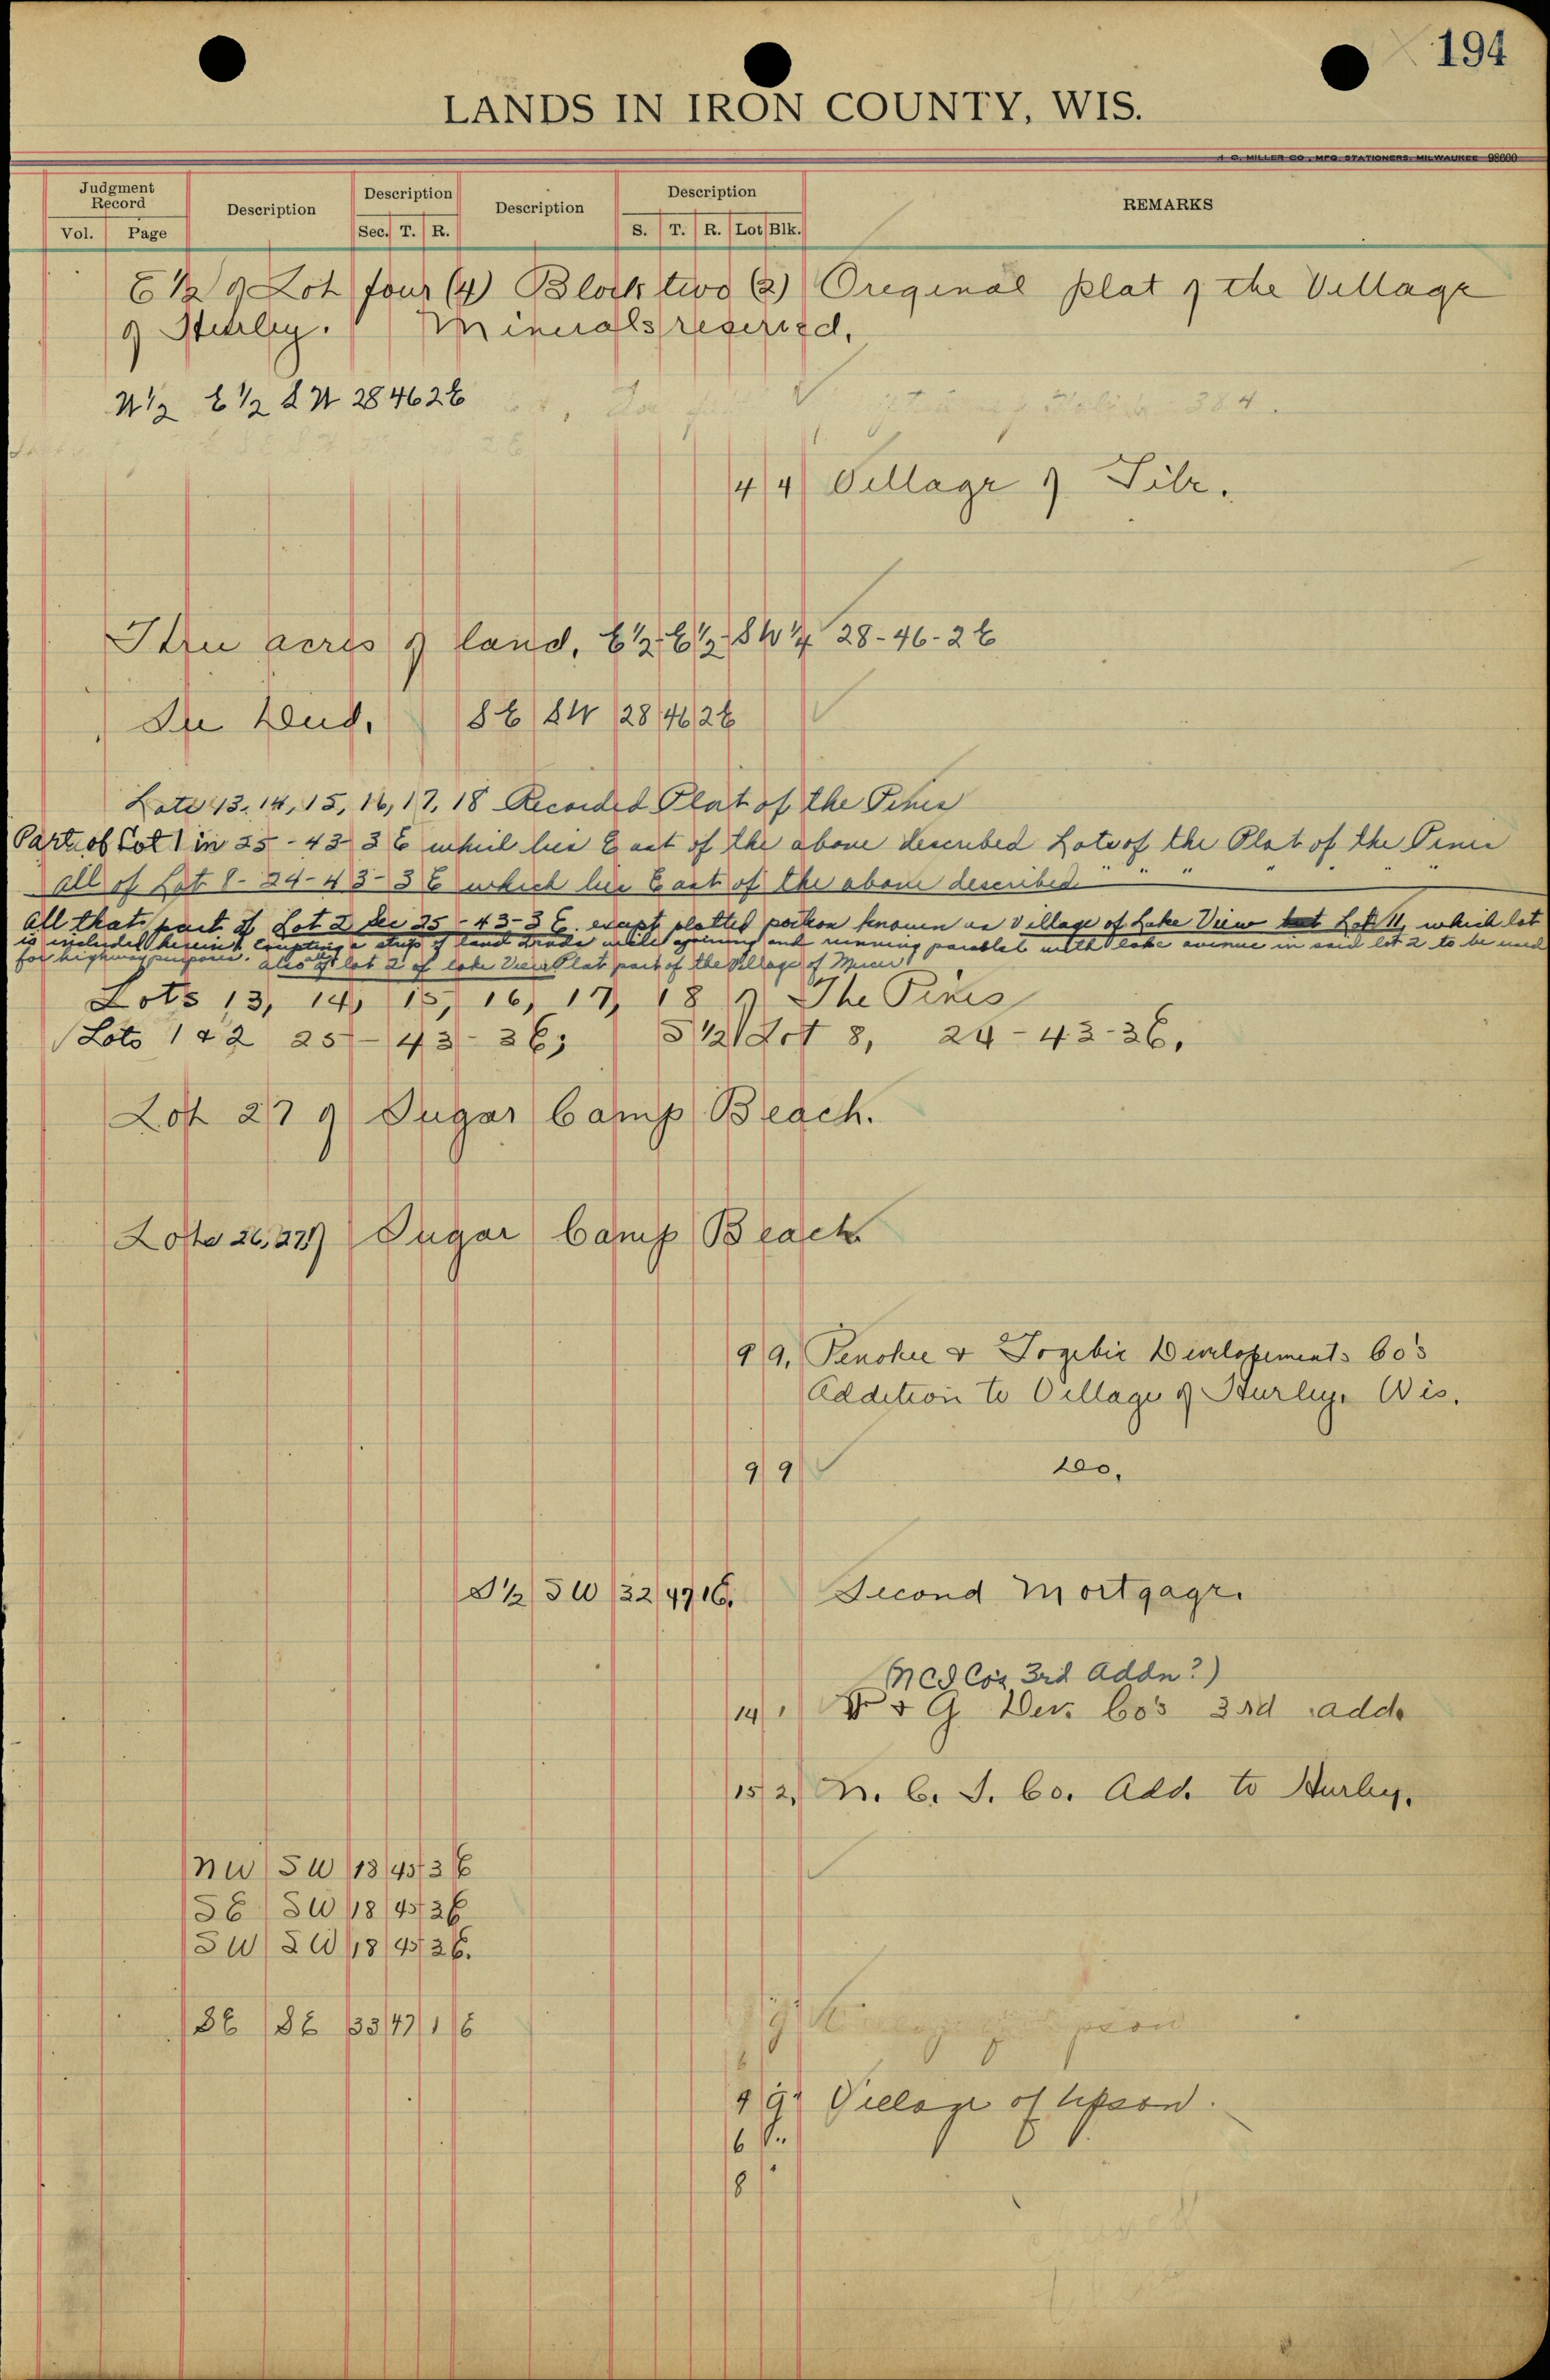 194
LANDS IN IRON COUNTY, WIS.
MILLER CO., MFG. STATIONERS, MILWAUKEE 98600
Judgment Record
Vol. Page
Description
Description
Sec. T. R.
Description
Description
S. T. R. Lot Blk.
REMARKS
E 1/2 of Lot four (4) Block two (2) Original plat of the Village
of Hurley. Minerals reserved.
N 1/2 E 1/2 S W 28 46 2 E
4 4 Village of Gile.
Three acres of land, E 1/2 E 1/2 SW 1/4 28-46-2 E
In Deed, SE SW 28 46 2 E
Lots 13, 14, 15, 16, 17, 18 Recorded Plat of the Pines
Part of Lot 1 in 25-43-3 E which lies East of the above described Lots of the Plat of the Pines
all of Lot 8-24-43-3 E which lies East of the above described " " " " " "
All that part of Lot 2 Sec 25-43-3 E. except platted portion known as Village of Lake View but Lot 11, which lot
is included herein & excepting a strip of land 2 rods wide adjoining and running parallel with lake avenue in said lot 2 to be used
for highway purposes. also all of lot 2 of lake View Plat part of the Village of Mercer
Lots 13, 14, 15, 16, 17, 18 of The Pines
Lots 1 & 2 25-43-3E; S 1/2 Lot 8, 24-43-3E.
Lot 27 of Sugar Camp Beach.
Lots 26, 27 of Sugar Camp Beach
9 9. Penokee & Gogebic Developement Co's
Addition to Village of Hurley, Wis.
9 9 do.
S 1/2 SW 32 47 1E. Second Mortgage.
(NCI Co's 3rd Addn?)
14 1 P & G Dev. Co's 3rd add.
15 2, N. C. I. Co. Add. to Hurley.
NW SW 18 45 3 E
SE SW 18 45 3E
SW SW 18 45 3E.
SE SE 33 47 1 E
9 9 Village of Upson.
6 "
8 "